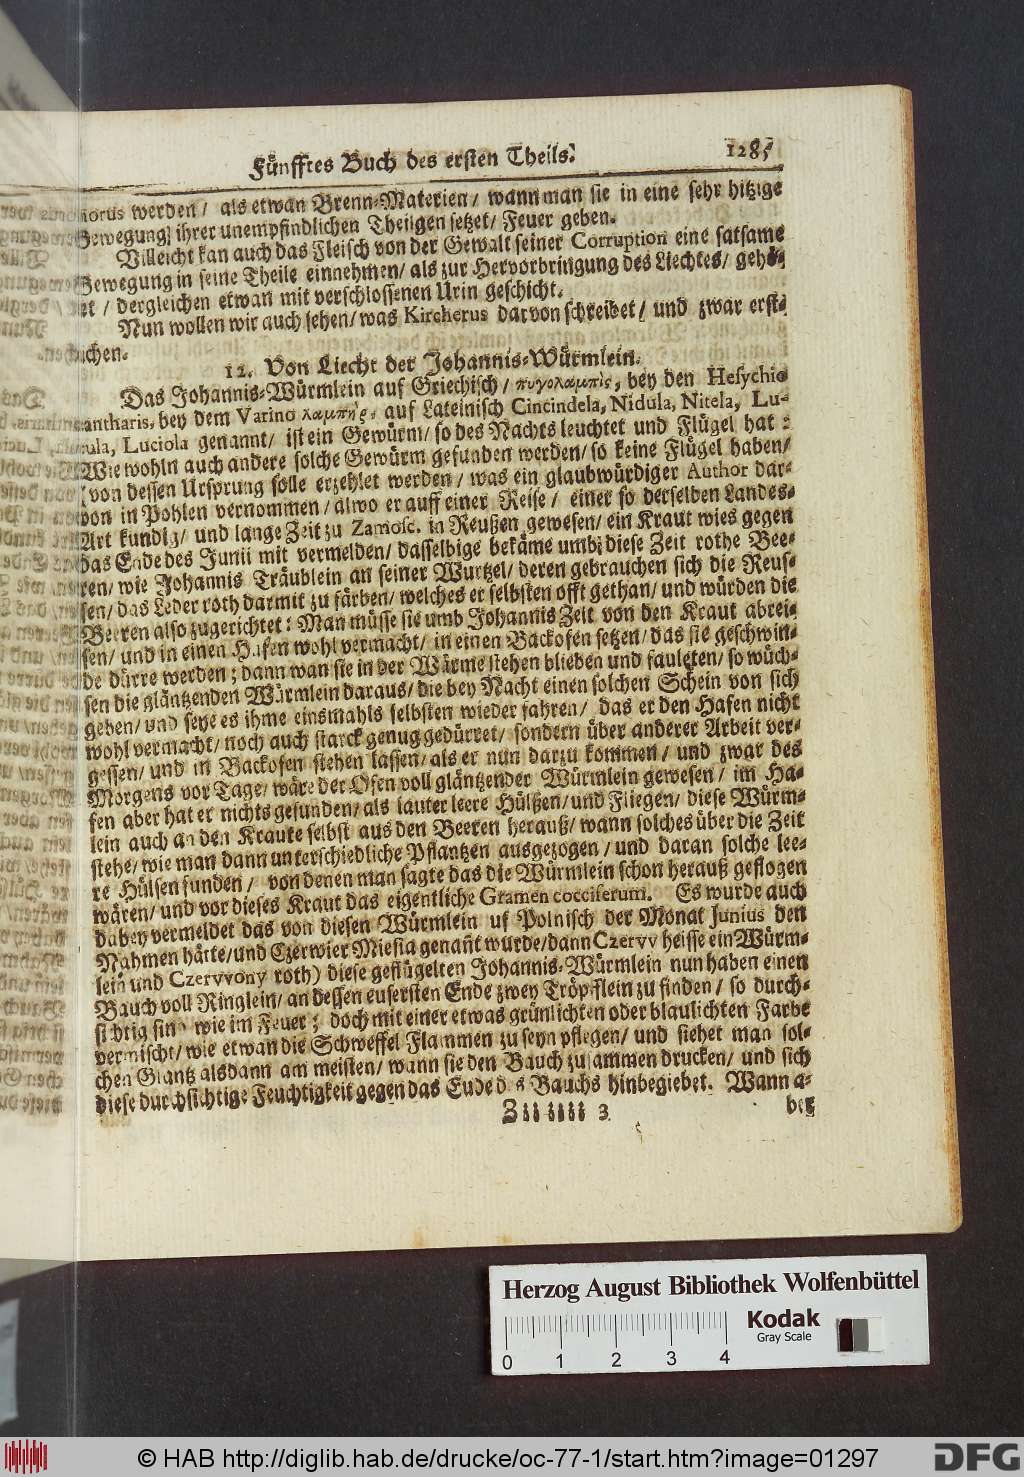 Fünfftes Buch des ersten Theils. 1285
orus werden / als etwan Brenn-Materien / wann man sie in eine sehr hitzige
Bewegung ihrer unempfindlichen Theilgen setzet / Feuer geben.
Villeicht kan auch das Fleisch von der Gewalt seiner Corruption eine satsame
Bewegung in seine Theile einnehmen / als zur Hervorbringung des Liechtes / gehö-
et / dergleichen etwan mit verschlossenen Urin geschicht.
Nun wollen wir auch sehen / was Kircherus darvon schreibet / und zwar erst-
chen.
12. Von Liecht der Johannis-Würmlein.
Das Johannis-Würmlein auf Griechisch / πυγολαμπὶς, bey den Hesychio
antharis, bey dem Varino λαμπὴρ, auf Lateinisch Cincindela, Nidula, Nitela, Lu-
ula, Luciola genannt / ist ein Gewürm / so des Nachts leuchtet und Flügel hat :
Wie wohln auch andere solche Gewürm gefunden werden / so keine Flügel haben /
(von dessen Ursprung solle erzehlet werden / was ein glaubwürdiger Author dar-
von in Pohlen vernommen / allwo er auff einer Reise / einer so derselben Landes-
Art kundig / und lange Zeit zu Zamosc. in Reußen gewesen / ein Kraut wies gegen
das Ende des Junii mit vermelden / dasselbige bekäme umb diese Zeit rothe Bee-
ren / wie Johannis Träublein an seiner Wurtzel / deren gebrauchen sich die Reus-
sen / das Leder roth darmit zu färben / welches er selbsten offt gethan / und würden die
Beeren also zugerichtet : Man müsse sie umb Johannis Zeit von den Kraut abrei-
sen / und in einen Hafen wohl vermacht / in einen Backofen setzen / das sie geschwin-
de dürre werden ; dann wan sie in der Wärme stehen blieben und fauleten / so wüch-
sen die gläntzenden Würmlein daraus / die bey Nacht einen solchen Schein von sich
geben / und seye es ihme einsmahls selbsten wieder fahren / das er den Hafen nicht
wohl vermacht / noch auch starck genug gedürret / sondern über anderer Arbeit ver-
gessen / und in Backofen stehen lassen / als er nun darzu kommen / und zwar des
Morgens vor Tage / wäre der Ofen voll gläntzender Würmlein gewesen / im Ha-
fen aber hat er nichts gefunden / als lauter leere Hülßen / und Fliegen / diese Würm-
lein auch an den Kraute selbst aus den Beeren herauß / wann solches über die Zeit
stehe / wie man dann unterschiedliche Pflantzen ausgezogen / und daran solche lee-
re Hülsen funden / von denen man sagte das die Würmlein schon herauß geflogen
wären / und vor dieses Kraut das eigentliche Gramen cocciferum. Es wurde auch
dabey vermeldet das von diesen Würmlein uf Polnisch der Monat Junius den
Nahmen hätte / und Czerwier Miesia genañt wurde / dann Czervv heisse ein Würm-
lein und Czervvony roth) diese geflügelten Johannis-Würmlein nun haben einen
Bauch voll Ringlein / an dessen eusersten Ende zwey Tröpfflein zu finden / so durch-
sichtig sin wie im Feuer ; doch mit einer etwas grünlichten oder blaulichten Farbe
vermischt / wie etwan die Schweffel Flammen zu seyn pflegen / und siehet man sol-
chen Glantz alsdann am meisten / wann sie den Bauch zusammen drucken / und sich
diese durchsichtige Feuchtigkeit gegen das Ende des Bauchs hinbegiebet. Wann a-
Zii iiii 3 ber
Herzog August Bibliothek Wolfenbüttel
Kodak
Gray Scale
0 1 2 3 4
© HAB http://diglib.hab.de/drucke/oc-77-1/start.htm?image=01297
DFG